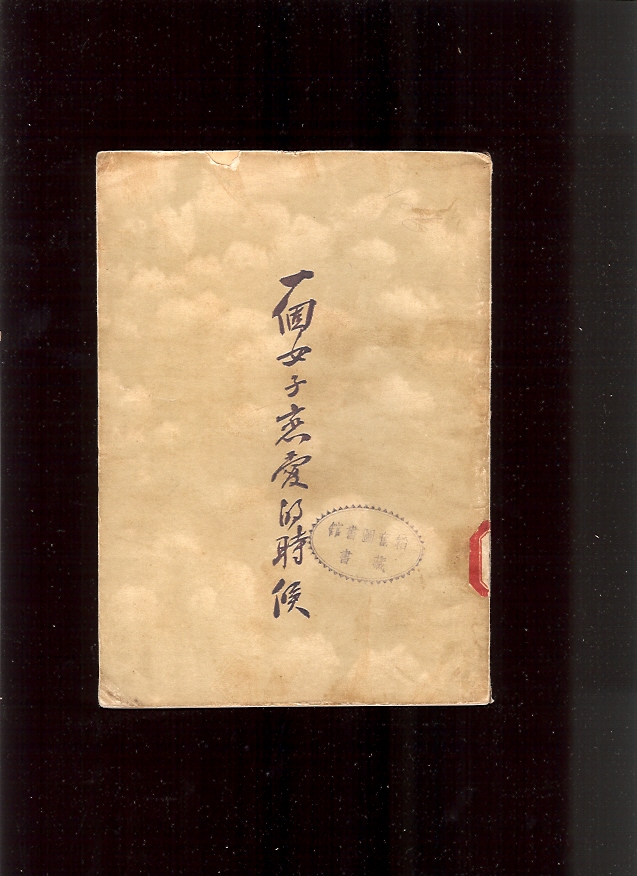 一個女子恋愛的時候
圖書館
藏書